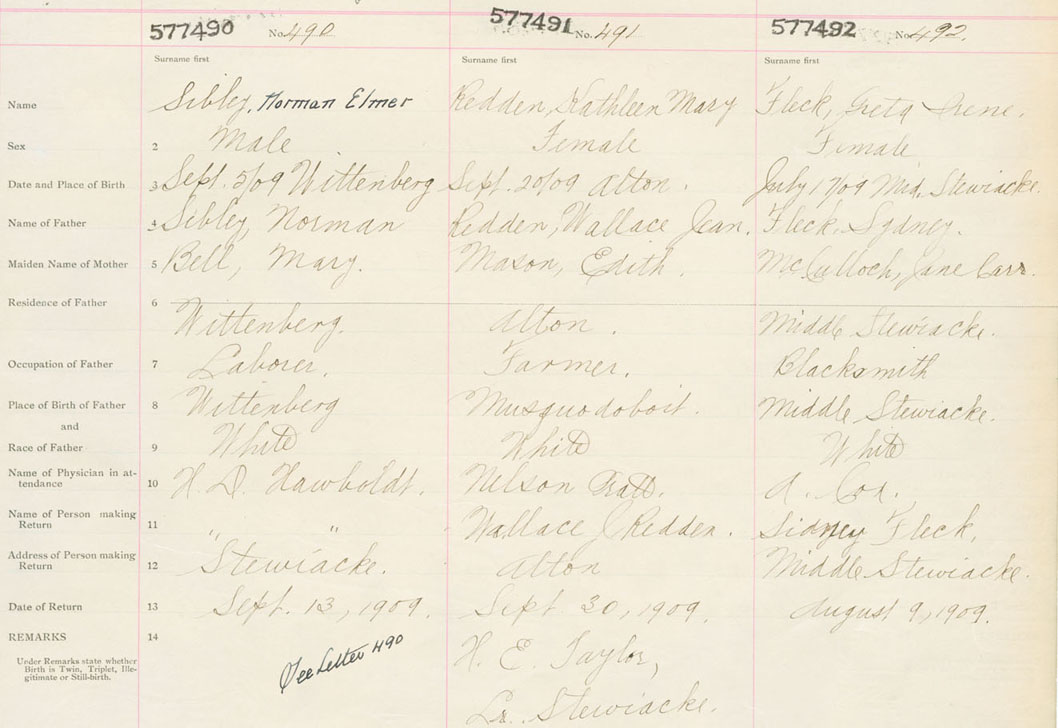 577490 No. 490 577491 No. 491 577492 No. 492.
Surname first Surname first Surname first
Name Sibley, Norman Elmer Redden, Kathleen Mary Fleck, Greta Irene.
Sex 2 Male Female Female
Date and Place of Birth 3 Sept. 5/09 Wittenberg Sept. 20/09 Alton. July 17/09 Mid. Stewiacke.
Name of Father 4 Sibley, Norman Redden, Wallace Jean. Fleck, Sydney.
Maiden Name of Mother 5 Bell, Mary. Mason, Edith. McCulloch, Jane Carr.
Residence of Father 6
Wittenberg. Alton. Middle Stewiacke.
Occupation of Father 7 Laborer. Farmer. Blacksmith
Place of Birth of Father 8 Wittenberg Musquodoboit. Middle Stewiacke.
and
Race of Father 9 White White White
Name of Physician in at-
tendance 10 H. D. Hawboldt. Nelson A. Cox.
Name of Person making
Return 11 " " Wallace J Redden. Sidney Fleck.
Address of Person making
Return 12 Stewiacke. Alton Middle Stewiacke.
Date of Return 13 Sept. 13, 1909. Sept. 30, 1909. August 9, 1909.
REMARKS 14
Under Remarks state whether
Birth is Twin, Triplet, Ille-
gitimate or Still-birth.
See Letter 490
H. E. Taylor,
Lr. Stewiacke.